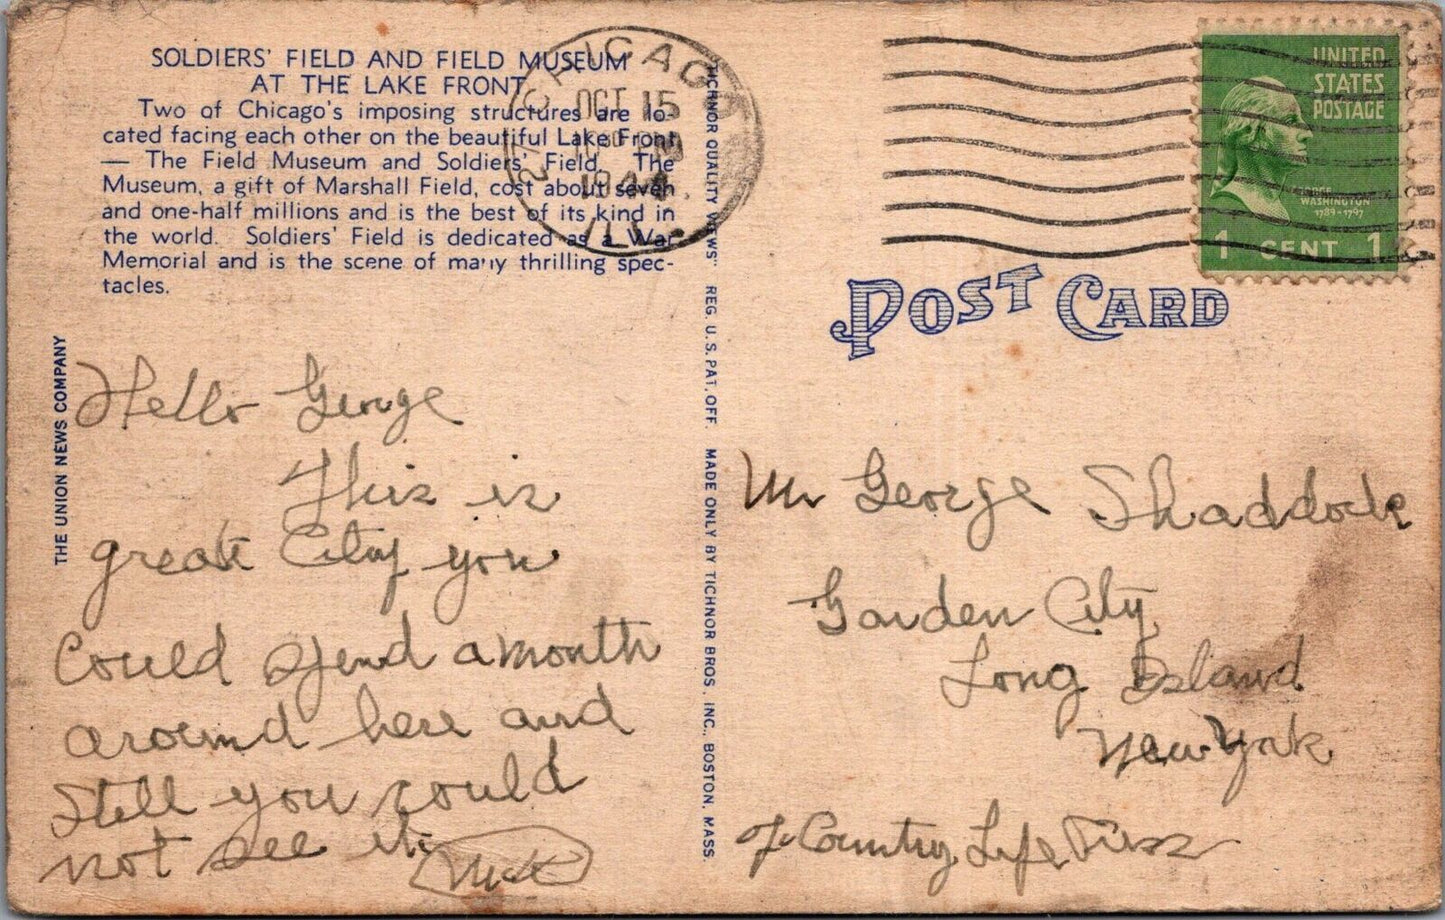 SOLDIERS' FIELD AND FIELD MUSEUM
AT THE LAKE FRONT
Two of Chicago's imposing structures are lo-
cated facing each other on the beautiful Lake Front
— The Field Museum and Soldiers' Field. The
Museum, a gift of Marshall Field, cost about seven
and one-half millions and is the best of its kind in
the world. Soldiers' Field is dedicated as a War
Memorial and is the scene of many thrilling spec-
tacles.
CHICAGO
OCT 15
1944
ILL.
UNITED
STATES
POSTAGE
GEORGE
WASHINGTON
1789-1797
1 CENT 1
POST CARD
THE UNION NEWS COMPANY
"TICHNOR QUALITY VIEWS" REG. U.S. PAT. OFF. MADE ONLY BY TICHNOR BROS. INC., BOSTON, MASS.
Hello George
This is
great City you
could spend a month
around here and
still you could
not see it.
Mr George Shaddock
Garden City
Long Island
New York
Country Life Press